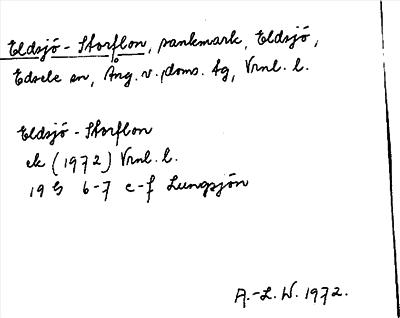 Eldsjö-Storflon, sankmark, Eldsjö,
Edsele sn, Ång. v. doms. tg, Vrnl. l.
Eldsjö-Storflon
ek (1972) Vrnl. l.
19 G 6-7 e-f Lungsjön
A.-L. W. 1972.